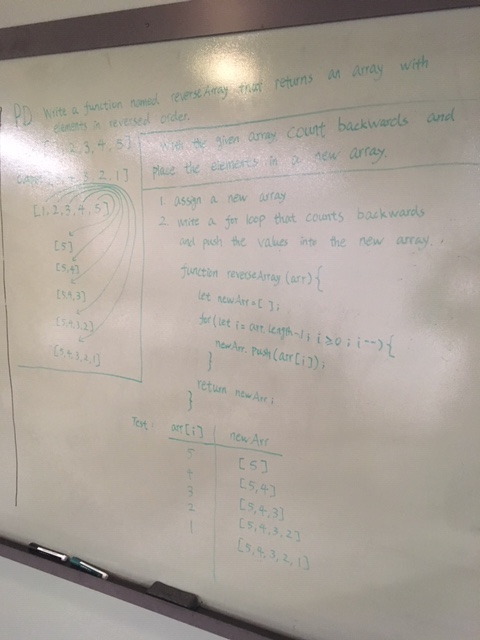 PD Write a function named reverseArray that returns an array with
elements in reversed order.
1,2,3,4,5]
3,2,1]
[1,2,3,4,5]
[5]
[5,4]
[5,4,3]
[5,4,3,2]
[5,4,3,2,1]
With the given array, count backwards and
place the elements in a new array.
1. assign a new array
2. write a for loop that counts backwards
and push the values into the new array.
function reverseArray (arr){
let newArr=[ ];
for(let i= arr.length-1; i≥0; i--){
newArr.push(arr[i]);
}
return newArr;
}
Test: arr[i] newArr
5 [5]
4 [5,4]
3 [5,4,3]
2 [5,4,3,2]
1 [5,4,3,2,1]